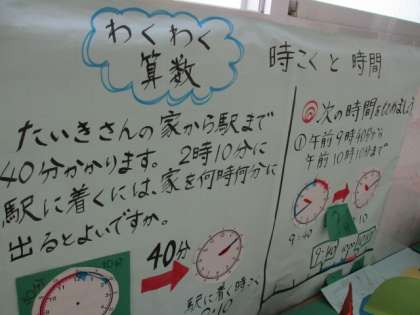 わくわく
算数
時こくと時間
たいきさんの家から駅まで
40分かかります。2時10分に
駅に着くには、家を何時何分に
出るとよいですか。
40分
駅に着く時こく
2:10
次の時間をもとめましょう
①午前9時40分から
午前10時10分まで
9:40
10:10
9:40